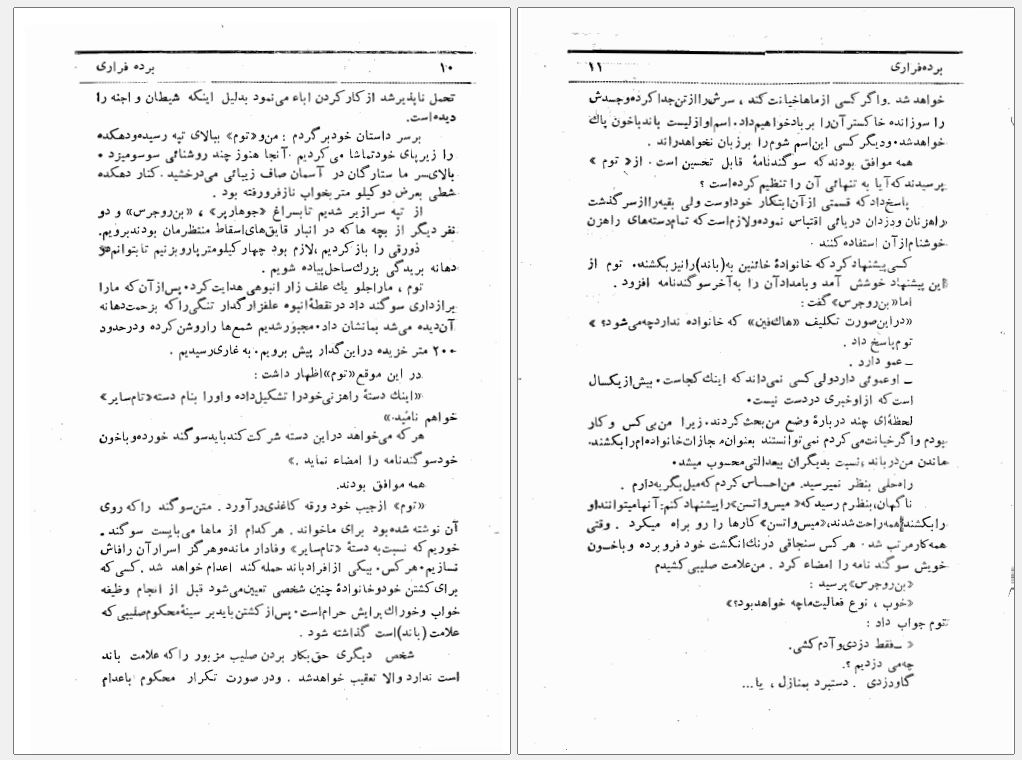 ۱۰ برده فراری
تحمل ناپذیر شد از کار کردن اباء می‌نمود بدلیل اینکه شیطان و اجنه را
دیده است.
بر سر داستان خود برگردم : من و «توم» ببالای تپه رسیده و دهکده
را زیر پای خود تماشا می‌کردیم . آنجا هنوز چند روشنائی سوسو میزد .
بالای سر ما ستارگان در آسمان صاف زیبائی می‌درخشید . کنار دهکده
شطی بعرض دو کیلو متر بخواب ناز فرو رفته بود .
از تپه سرازیر شدیم تا بسراغ «جوهارپر» ، «بن روجرس» و دو
نفر دیگر از بچه ها که در انبار قایق‌های اسقاط منتظرمان بودند برویم.
ذورقی را باز کردیم ، لازم بود چهار کیلومتر پارو بزنیم تا بتوانم در
دهانه بریدگی بزرگ ساحل پیاده شویم .
توم ، ما را جلو یك علف زار انبوهی هدایت کرد . پس از آن که ما را
براز داری سوگند داد در نقطهٔ انبوه علفزار گدار تنگی را که بزحمت دهانه
آن دیده می‌شد بما نشان داد . مجبور شدیم شمع‌ها را روشن کرده و در حدود
۲۰۰ متر خزیده در این گدار پیش برویم . به غاری رسیدیم .
در این موقع «توم» اظهار داشت :
«اینك دستهٔ راهزنی خود را تشکیل داده و او را بنام دسته «تام سایر»
خواهم نامید .»
هر که می‌خواهد در این دسته شرکت کند باید سوگند خورده و با خون
خود سوگند نامه را امضاء نماید .»
همه موافق بودند.
«توم» از جیب خود ورقه کاغذی در آورد . متن سوگند را که روی
آن نوشته شده بود برای ما خواند . هر کدام از ماها می‌بایست سوگند .
خوریم که نسبت به دستهٔ «تام سایر» وفادار مانده و هرگز اسرار آن را فاش
نسازیم . هر کس . بیکی از افراد باند حمله کند اعدام خواهد شد . کسی که
برای کشتن خود و خانوادهٔ چنین شخصی تعیین می‌شود قبل از انجام وظیفه
خواب و خوراك برایش حرام است . پس از کشتن باید بر سینهٔ محکوم صلیبی که
علامت (باند) است گذاشته شود .
شخص دیگری حق بکار بردن صلیب مزبور را که علامت باند
است ندارد والا تعقیب خواهد شد . و در صورت تکرار محکوم باعدام
برده فراری ۱۱
خواهد شد . و اگر کسی از ماها خیانت کند ، سرش را از تن جدا کرده و جسدش
را سوزانده خاکستر آن را بر باد خواهیم داد . اسم او از لیست باند با خون پاك
خواهد شد . و دیگر کسی این اسم شوم را بر زبان نخواهد راند .
همه موافق بودند که سوگندنامهٔ قابل تحسین است . از « توم »
پرسیدند که آیا به تنهائی آن را تنظیم کرده است ؟
پاسخ داد که قسمتی از آن ابتکار خود اوست ولی بقیه را از سرگذشت
راهزنان و دزدان دریائی اقتباس نموده و لازم است که تمام دسته‌های راهزن
خوشنام از آن استفاده کنند .
کسی پیشنهاد کرد که خانوادهٔ خائنین به (باند) را نیز بکشند . توم از
این پیشنهاد خوشش آمد و با مداد آن را به آخر سوگندنامه افزود .
اما «بن روجرس» گفت :
«در این صورت تکلیف «هاك فین» که خانواده ندارد چه می‌شود؟ »
توم پاسخ داد .
ــ عمو دارد .
ــ او عموئی دارد ولی کسی نمی‌داند که اینك کجاست . بیش از یکسال
است که از او خبری در دست نیست .
لحظه‌ای چند در بارهٔ وضع من بحث کردند . زیرا من بی کس و کار
بودم و اگر خیانت می‌کردم نمی‌توانستند بعنوان مجازات خانواده‌ام را بکشند.
ماندن من در باند ، نسبت بدیگران بیعدالتی محسوب میشد .
راه حلی بنظر نمیرسید. من احساس کردم که میل بگریه دارم .
ناگهان، بنظرم رسید که «میس واتسن» را پیشنهاد کنم : آنها میتوانند او
را بکشند همه راحت شدند، «میس واتسن» کارها را رو براه میکرد . وقتی
همه کار مرتب شد . هر کس سنجاقی در نك انگشت خود فرو برده و با خون
خویش سوگند نامه را امضاء کرد . من علامت صلیبی کشیدم
«بن روجرس» پرسید :
«خوب ، نوع فعالیت ما چه خواهد بود؟»
توم جواب داد :
« ــ فقط دزدی و آدم کشی.
چه می دزدیم ؟.
گاو دزدی . دستبرد بمنازل ، یا...